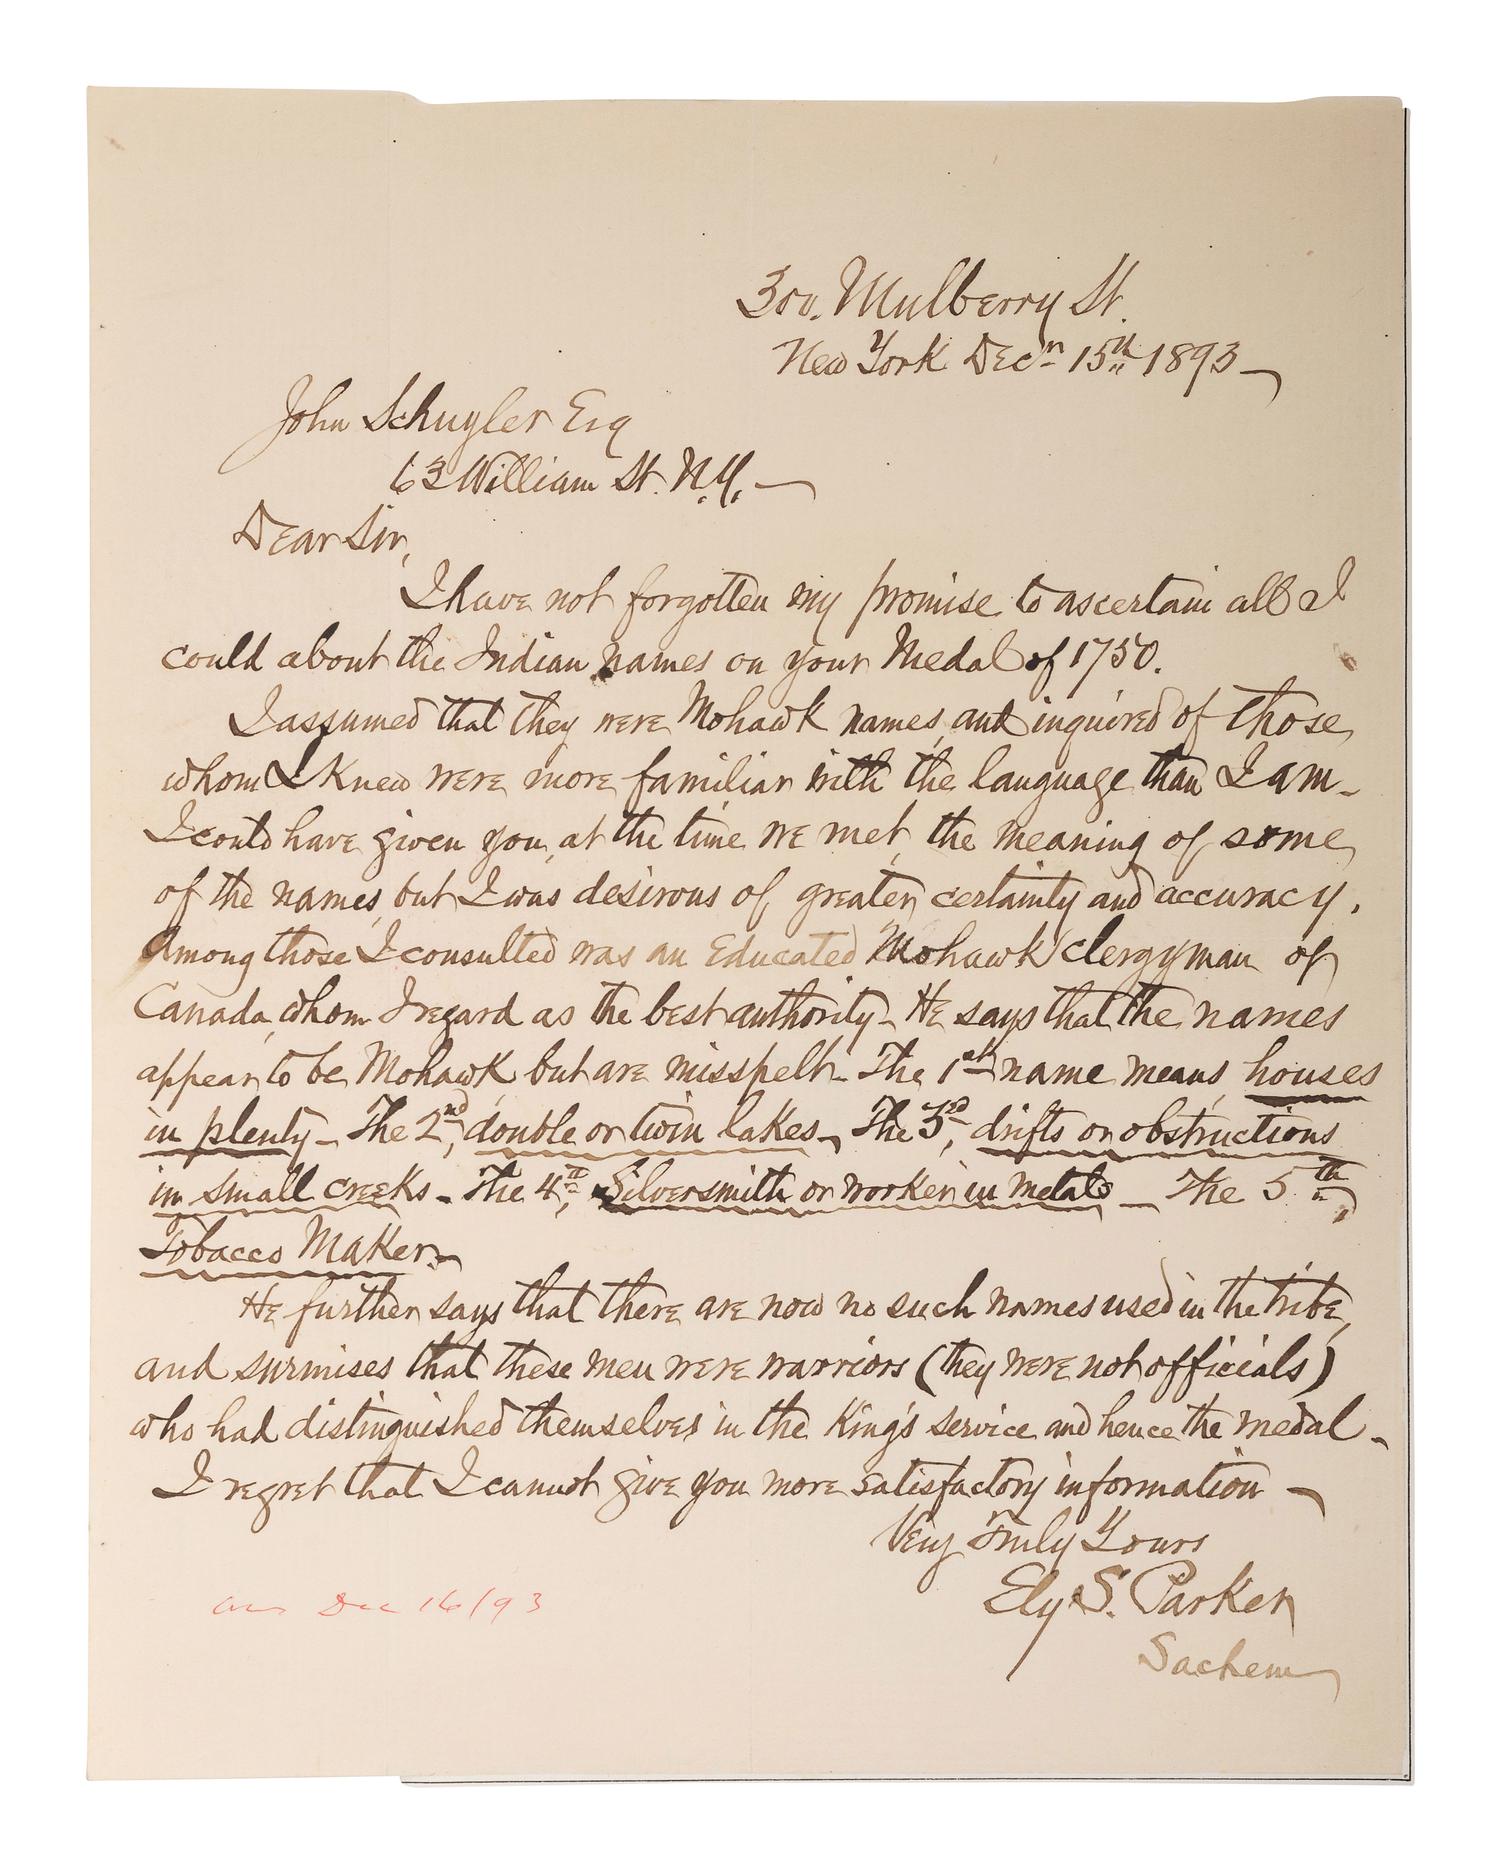 300. Mulberry St.
New York Decr 15th 1893
John Schuyler Esq
63 William St. N.Y.
Dear Sir,
I have not forgotten my promise to ascertain all I
could about the Indian names on your Medal of 1750.
I assumed that they were Mohawk names, and inquired of those
whom I knew were more familiar with the language than I am -
I could have given you, at the time we met, the meaning of some
of the names, but I was desirous of greater certainty and accuracy.
Among those I consulted was an Educated Mohawk clergyman of
Canada, whom I regard as the best authority - He says that the names
appear to be Mohawk but are misspelt - The 1st name means, houses
in plenty - The 2nd, double or twin lakes - The 3rd, drifts or obstructions
in small creeks - The 4th, Silversmith or worker in metals - The 5th,
Tobacco Maker -
He further says that there are now no such names used in the tribe,
and surmises that these men were warriors (they were not officials)
who had distinguished themselves in the King's service and hence the medal -
I regret that I cannot give you more satisfactory information -
Very Truly Yours
Ely S. Parker
Sachem
Dec 16/93